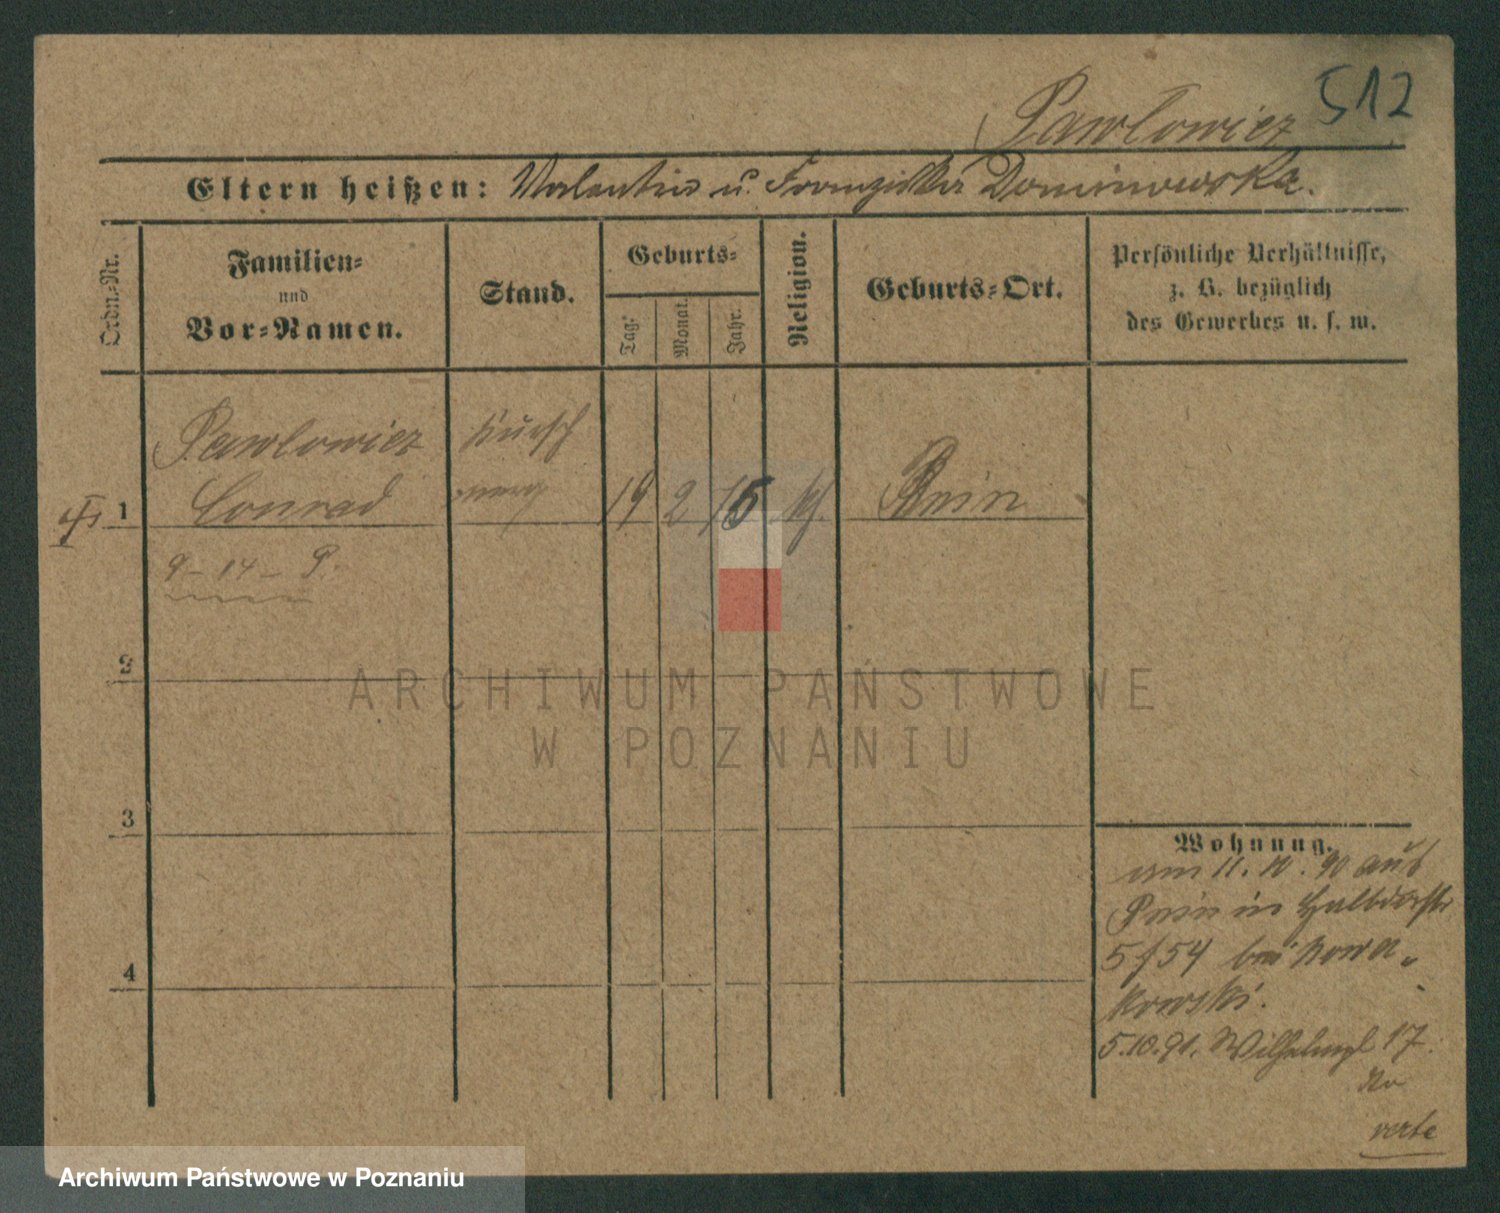 512
Pawlowicz
Eltern heißen: Valentin u. Franziska Dominowska.
Ordn.-Nr.
Familien-
und
Vor-Namen.
Stand.
Geburts-
Tag.
Monat.
Jahr.
Religion.
Geburts-Ort.
Persönliche Verhältnisse,
z. B. bezüglich
des Gewerbes u. s. w.
Pawlowicz
Conrad
1
19 2 75
Pnin
9 - 14 - P.
2
ARCHIWUM PAŃSTWOWE
W POZNANIU
3
Wohnung.
am 11. 10. 90 aus
Pnin in Halbdorfstr
4
5 f 54 bei Nowa-
kowski.
5.10.91. Wilhelmpl 17.
verte
Archiwum Państwowe w Poznaniu